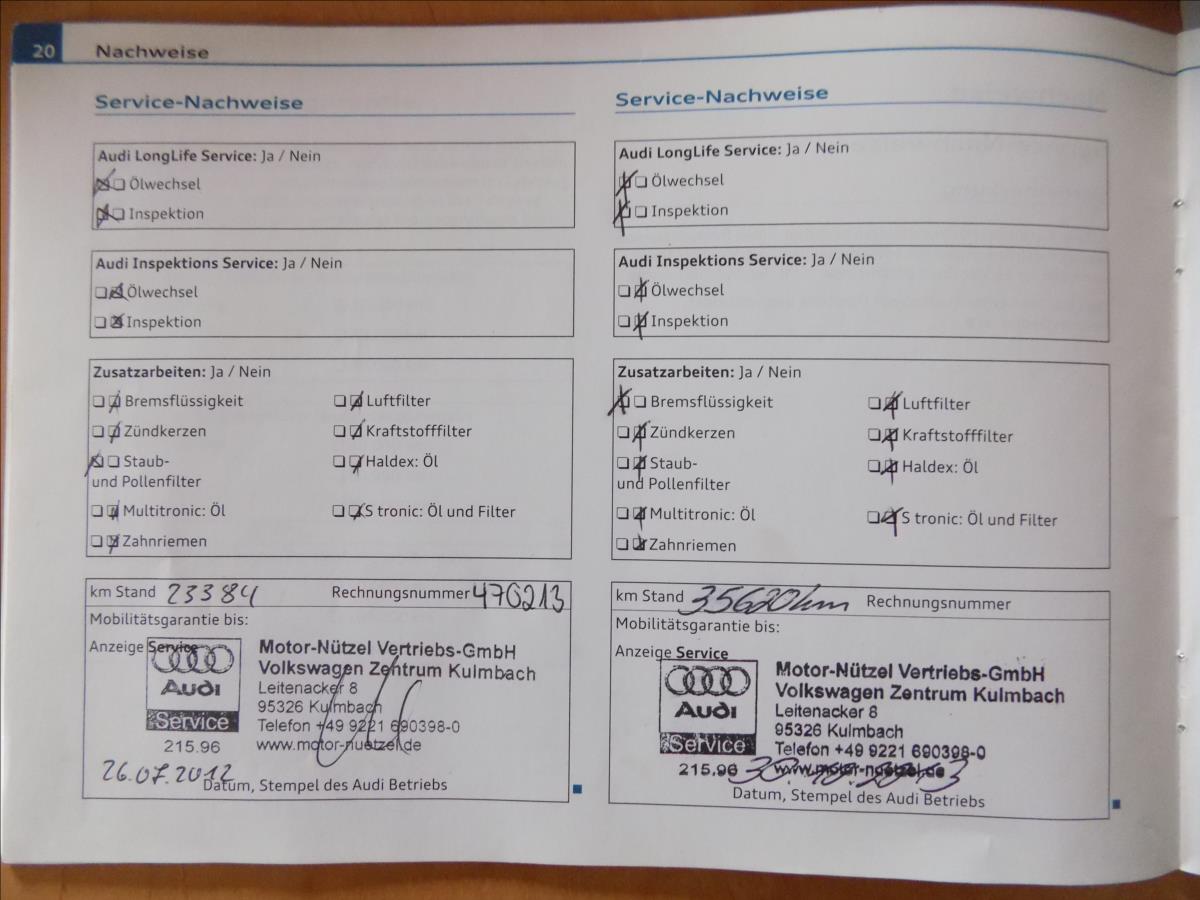 20 Nachweise
Service-Nachweise
Audi LongLife Service: Ja / Nein
Ölwechsel
Inspektion
Audi Inspektions Service: Ja / Nein
Ölwechsel
Inspektion
Zusatzarbeiten: Ja / Nein
Bremsflüssigkeit
Luftfilter
Zündkerzen
Kraftstofffilter
Staub-
und Pollenfilter
Haldex: Öl
Multitronic: Öl
S tronic: Öl und Filter
Zahnriemen
km Stand 23384 Rechnungsnummer 470213
Mobilitätsgarantie bis:
Anzeige Service
Audi
Service
215.96
Motor-Nützel Vertriebs-GmbH
Volkswagen Zentrum Kulmbach
Leitenacker 8
95326 Kulmbach
Telefon +49 9221 690398-0
www.motor-nuetzel.de
26.07.2012
Datum, Stempel des Audi Betriebs
Service-Nachweise
Audi LongLife Service: Ja / Nein
Ölwechsel
Inspektion
Audi Inspektions Service: Ja / Nein
Ölwechsel
Inspektion
Zusatzarbeiten: Ja / Nein
Bremsflüssigkeit
Luftfilter
Zündkerzen
Kraftstofffilter
Staub-
und Pollenfilter
Haldex: Öl
Multitronic: Öl
S tronic: Öl und Filter
Zahnriemen
km Stand 35620km Rechnungsnummer
Mobilitätsgarantie bis:
Anzeige Service
Audi
Service
215.96
Motor-Nützel Vertriebs-GmbH
Volkswagen Zentrum Kulmbach
Leitenacker 8
95326 Kulmbach
Telefon +49 9221 690398-0
www.motor-nuetzel.de
Datum, Stempel des Audi Betriebs